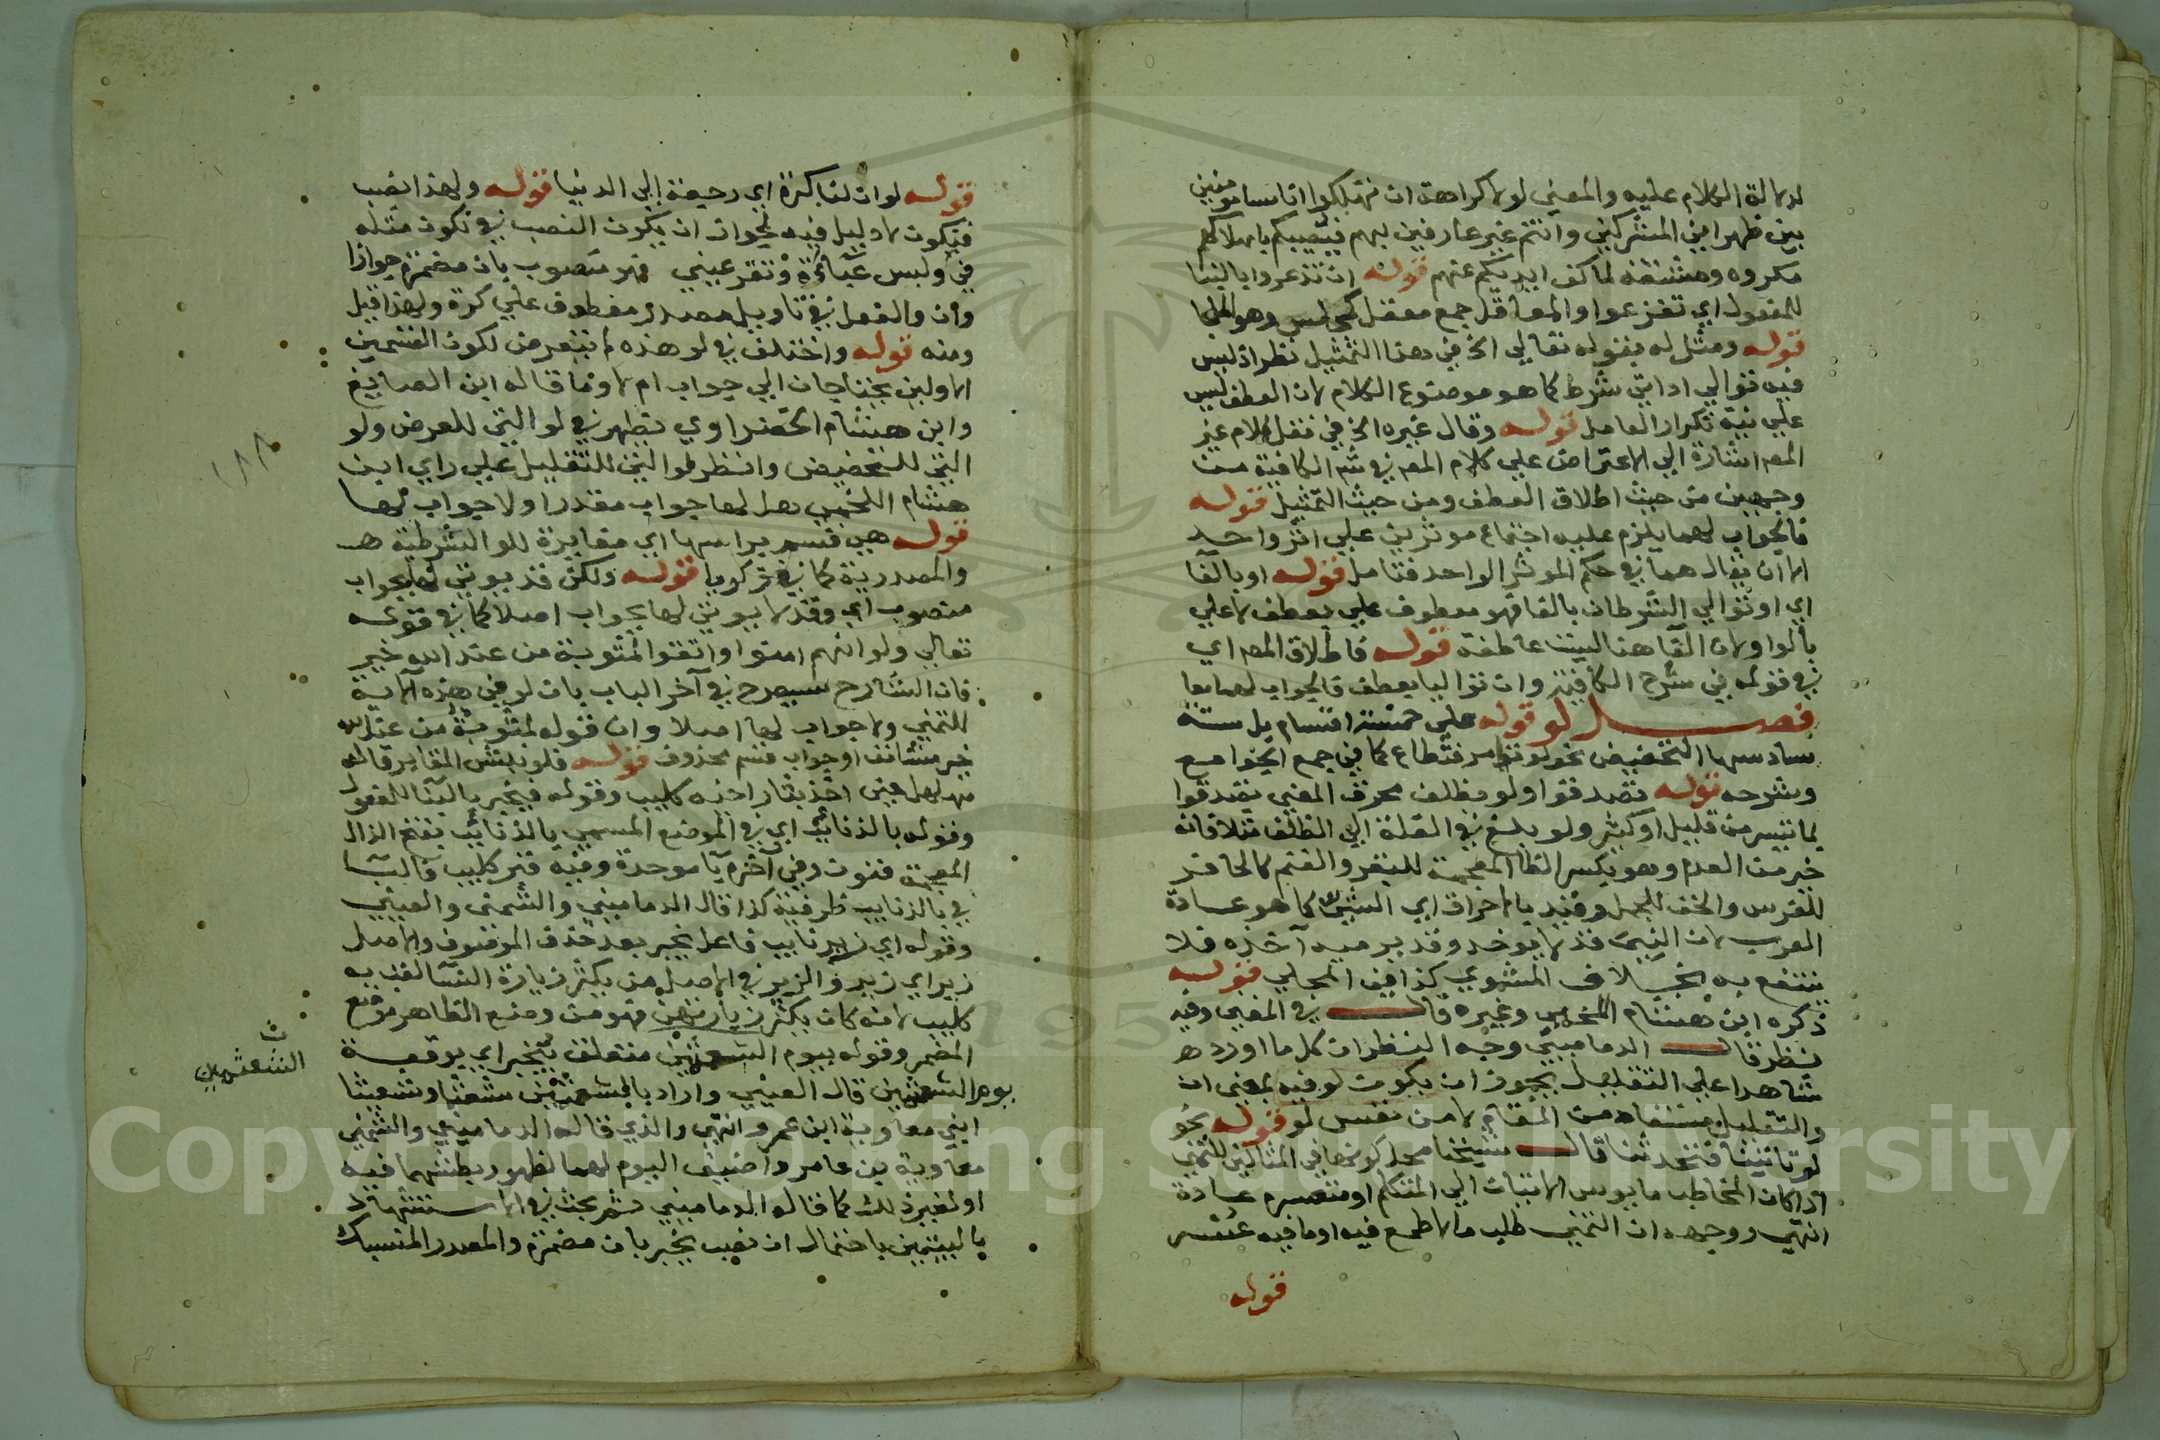 لدلالة الكلام عليه والمعنى لولا كراهة ان تهلكوا اناسا مومنين
بين ظهراني المشركين وانتم غير عارفين بهم فيصيبكم باهلاكهم
مكروه ومشقة لما كف ايديكم عنهم قوله ان تذعروا بالبنا
للمفعول اي تفزعوا والمعاقل جمع معقل كمجلس وهو الملجا
قوله ومثل له بقوله تعالى الخ في هذا التمثيل نظر اذ ليس
فيه توالي اداتي شرط كما هو موضوع الكلام لان العطف ليس
على نية تكرار العامل قوله وقال غيره الخ في نقل كلام غير
المص اشارة الى الاعتراض على كلام المص في شر الكافية من
وجهين من حيث اطلاق العطف ومن حيث التمثيل قوله
فالجواب لهما يلزم عليه اجتماع موثرين على اثر واحد
الا ان يقال هما في حكم الموثر الواحد فتامل قوله او بالفا
اي او توالي الشرطان بالفا فهو معطوف على بعطف لا على
بالواو لان الفا هنا ليست عاطفة قوله فاطلاق المص اي
في قوله في شرح الكافية وان تواليا بعطف فالجواب لهما معا
فصل لو قوله على خمسة اقسام بل ستة
سادسها التحضيض نحو لو تامر فتطاع كما في جمع الجوامع
وشرحه قوله تصدقوا ولو بظلف محرق المعنى تصدقوا
بما تيسر من قليل او كثير ولو بلغ في القلة الى الظلف مثلا فانه
خير من العدم وهو بكسر الظا المعجمة للبقر والغنم كالحافر
للفرس والخف للجمل وقيد بالاحراق اي الشي كما هو عادة
العرب لان الني قد لا يوخد وقد يرميه آخذه فلا
ينتفع به بخلاف المشوي كذا في المحلي قوله
ذكره ابن هشام اللخمي وغيره قال في المغني وفيه
نظر قال الدماميني وجه النظر ان كل ما اورده
شاهدا على التقليل يجوز ان يكون لو فيه بمعنى ان
والتقليل مستفاد من المقام لا من نفس لو قوله نحو
لو تاتينا فتحدثنا قال شيخنا محل كونها في المثالين للتمني
اذا كان المخاطب مايوس الاتيان الى المتكلم او متعسره عادة
انتهى ووجهه ان التمني طلب ما لا طمع فيه او ما فيه عسر
قوله
قوله لو ان لنا كرة اي رجعة الى الدنيا قوله ولهذا نصب
فيكون لا دليل فيه لجواز ان يكون النصب في نكون مثله
في ولبس عباءة وتقر عيني فهو منصوب بان مضمرة جوازا
وان والفعل في تاويل مصدر معطوف على كرة ولهذا قيل
ومنه قوله واختلف في لو هذه لم يتعرض لكون القسمين
الاولين يحتاجان الى جواب ام لا وما قاله ابن الصايغ
وابن هشام الخضراوي يظهر في لو التي للعرض ولو
التي للتحضيض وانظر لو التي للتقليل على راي ابن
هشام اللخمي هل لها جواب مقدر او لا جواب لها
قوله هي قسم براسها اي مغايرة للو الشرطية
والمصدرية كما في زكريا قوله ولكن قد يوتى لها بجواب
منصوب اي وقد لا يوتى لها بجواب اصلا كما في قوله
تعالى ولو انهم امنوا واتقوا لمثوبة من عند الله خير
فان الشارح سيصرح في آخر الباب بان لو في هذه الاية
للتمني ولا جواب لها اصلا وان قوله لمثوبة من عند الله
خير مستانف او جواب قسم محذوف قوله فلو نبش المقابر قاله
مهلهل حين اخذ بثار اخيه كليب وقوله فيخبر بالبنا للمفعول
وقوله بالذنائب اي في الموضع المسمى بالذنائب بفتح الذال
المعجمة فنون وفي آخره يا موحدة وفيه قبر كليب فالبا
في بالذنايب ظرفية كذا قال الدماميني والشمني والعيني
وقوله اي زير نايب فاعل يخبر بعد حذف الموصوف والاصل
زير اي زير والزير في الاصل من يكثر زيارة النسا لقب به
كليب لانه كان يكثر زيارتهن فهو من وضع الظاهر موضع
المضمر وقوله بيوم الشعثمين متعلق بيخبر اي بوقعة
يوم الشعثمين قال العيني واراد بالشعثمين شعثما وشعيثا
ابني معاوية ابن عمرو انتهى والذي قاله الدماميني والشمني
معاوية بن عامر واضيف اليوم لهما لظهور بطشهما فيه
او لغير ذلك كما قاله الدماميني ثم بحث في الاستشهاد
بالبيتين باحتمال ان نصب يخبر بان مضمرة والمصدر المنسبك
ث
الشعثمين
١٨٨